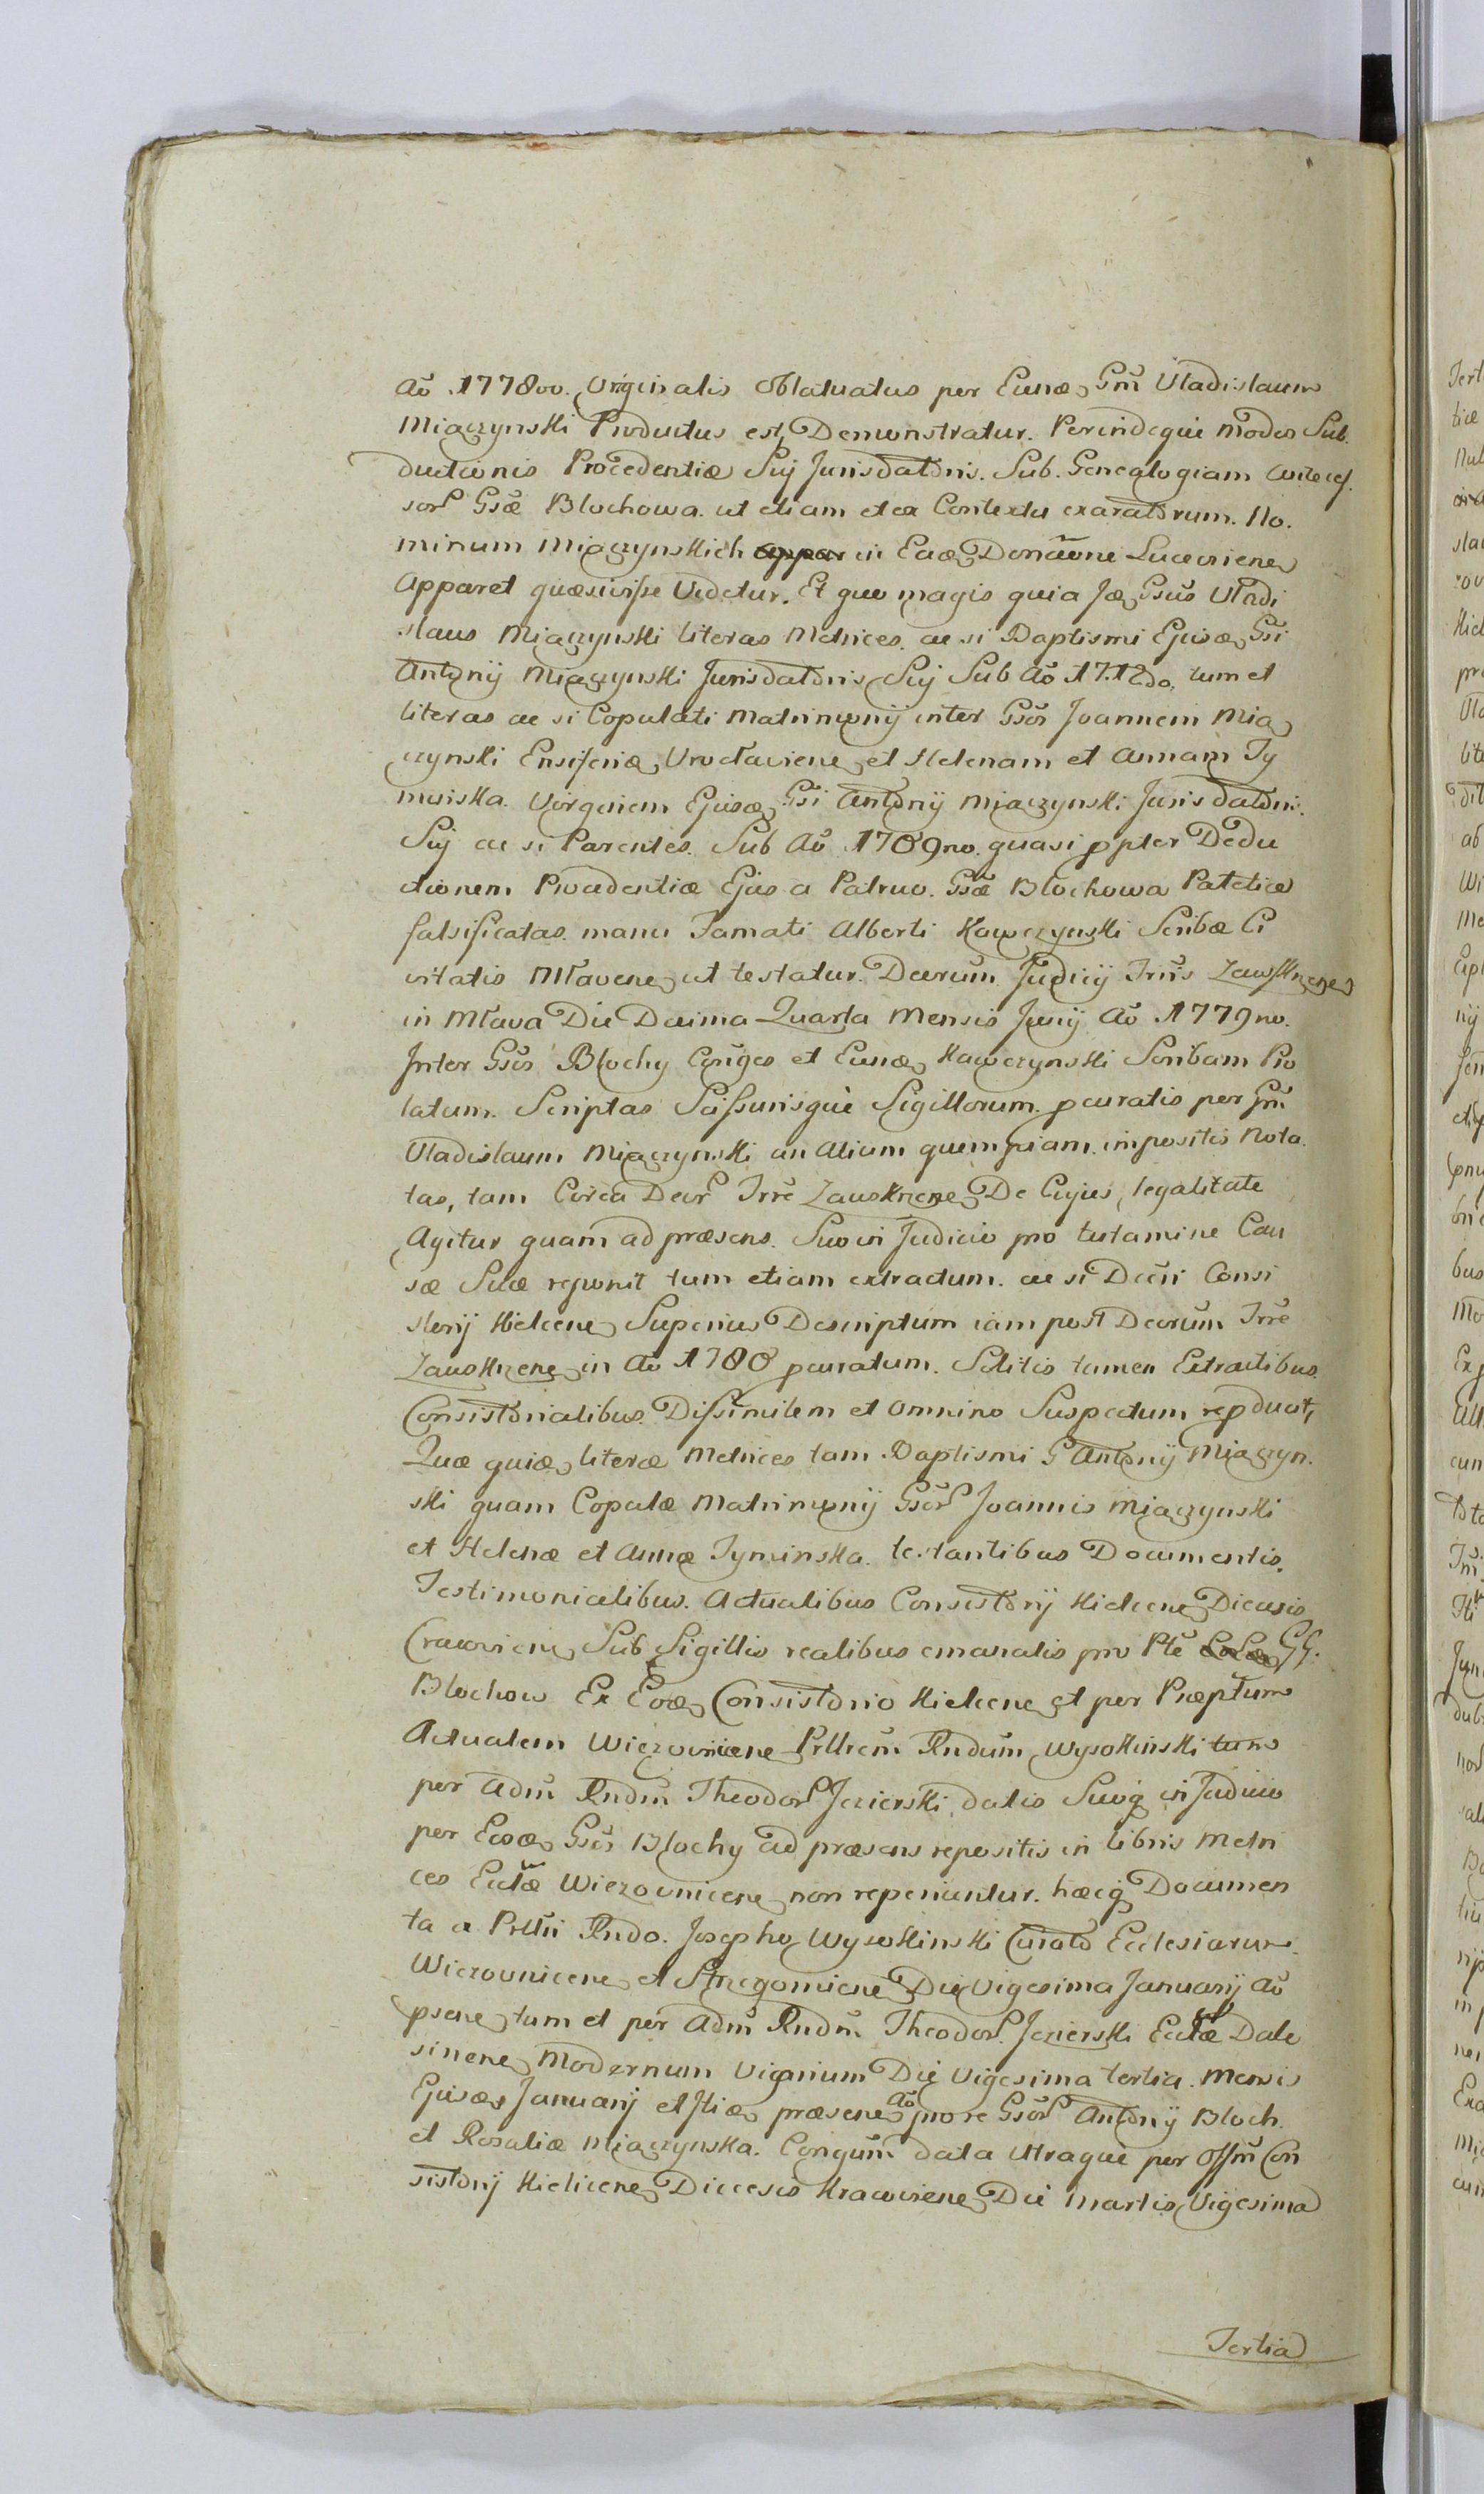 Aõ 1778vo. Originalis Oblatuatus per Eundē Gm̃ Vladislaum
Miączynski Productus est, Demonstratur. Perindeque modo Sub.
ductionis Procedentiæ Suj Jurisdatõris. Sub. Genealogiam
Gsæ Blochowa. ut etiam et ex Contextu exaratõrum. No.
minum Miączynskich in Eadē Donãone Lucaviene
Apparet quæsivisse Videtur. Et quo magis quia Jdē Gsũs Vladi
slaus Miączynski literas Metrices. ac si Baptismi Ejusdē Gsi
Antonij Miączynski Jurisdatõris Suj Sub Aõ 1712do, tum et
literas ac si Copulati Matrimonij inter Gsõs Joannem Mia
czynski Ensiferũ Vroclaviene et Helenam et Annam Ty
minska. Virginem Ejusdē Gsi Antonij Miączynski Jurisdatõris.
Suj ac si Parentes. Sub Aõ 1709no. quasi ppter Dedu
ctionem Procedentiæ Ejus a Patruo. Gsæ Blochowa Patetice
falsificatas. manu Famati Alberti Kawczynski Scribæ Ci
vitatis Mlavene ut testatur. Decrum̃ Judicij Trr̃is Zawskrzene
in Mlava Die Decima Quarta Mensis Junij Aõ 1779no.
Inter Gsõs Blochy Coñges et Eundē Kawczynski Scribam Pro
latum. Scriptas Scissurisque Sigillorum. pcuratis per Gm̃
Vladislaum Miączynski an Alium quempiam. impositis Nota
tas, tam Circa Decr̃ Trr̃e Zawskrzene De Cujus, legalitate
Agitur quam ad præsens. Suo in Judicio pro tutamine Cau
sæ Suæ reponit tum etiam extractum. ac si Decr̃i Consi
storij Kielcene Superius Descriptum iam post Decrum̃ Trr̃e
Zawskrzene in Aõ 1780 pcuratum. Solitis tamen Extractibus
Consistorialibus. Dissimilem et Omnino Suspectum repducit,
Quæ quidē literæ Metrices tam Baptismi G Antonij Miączyn.
ski quam Copulæ Matrimonij Gsor̃ Joannis Miączynski
et Helenæ et Annæ Tyminska. testantibus Documentis.
Testimonialibus. Actualibus Consistorij Kielcene Diecesis
Cracoviene Sub Sigillis realibus emanatis pro Pte GG.
Blochow Ex Eodē Consistorio Kielcene et per Præptum
Actualem Wierzovniciene Plrem̃ Rndum̃ Wysokinski tum
per Adm̃ Rndm̃ Theodor Jezierski datis Suoq in Judicio
per Eosdē Gsõs Blochy ad præsens repositis in libris Metri
ces Ecclæ Wierzovnicene non reperiuntur. hæcq Documen
ta a Rndo. Josepho Wysokinski Curato Ecclesiarum.
Wierzovnicene et Strzegomiene Die Vigesima Januarij Aõ
psene tum et per Adm̃ Rndm̃ Theodor. Jezierski Ecclæ Dale
sinene Modernum Vicarium Die Vigesima tertia. Mensis
Ejusdē Januarij et Itidē præsene Aõ pro re Gsor̃ Antonij Bloch.
et Rosaliæ Miączynska. Congum̃ data Utraque per Offm̃ Con
sistorij Kielicene Diecesis Kracoviene Die Martis Vigesima
Tertia